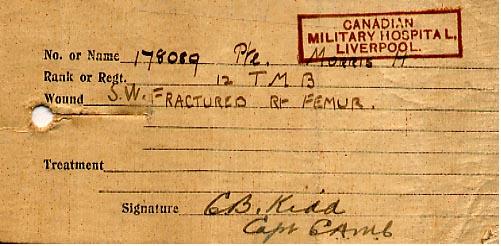 CANADIAN
MILITARY HOSPITAL,
LIVERPOOL.
No. or Name 178089 Pte. Morris H
Rank or Regt. 12 T M B
Wound S.W. FRACTURED Rt FEMUR.
Treatment
Signature C B. Kidd
Capt CAMC